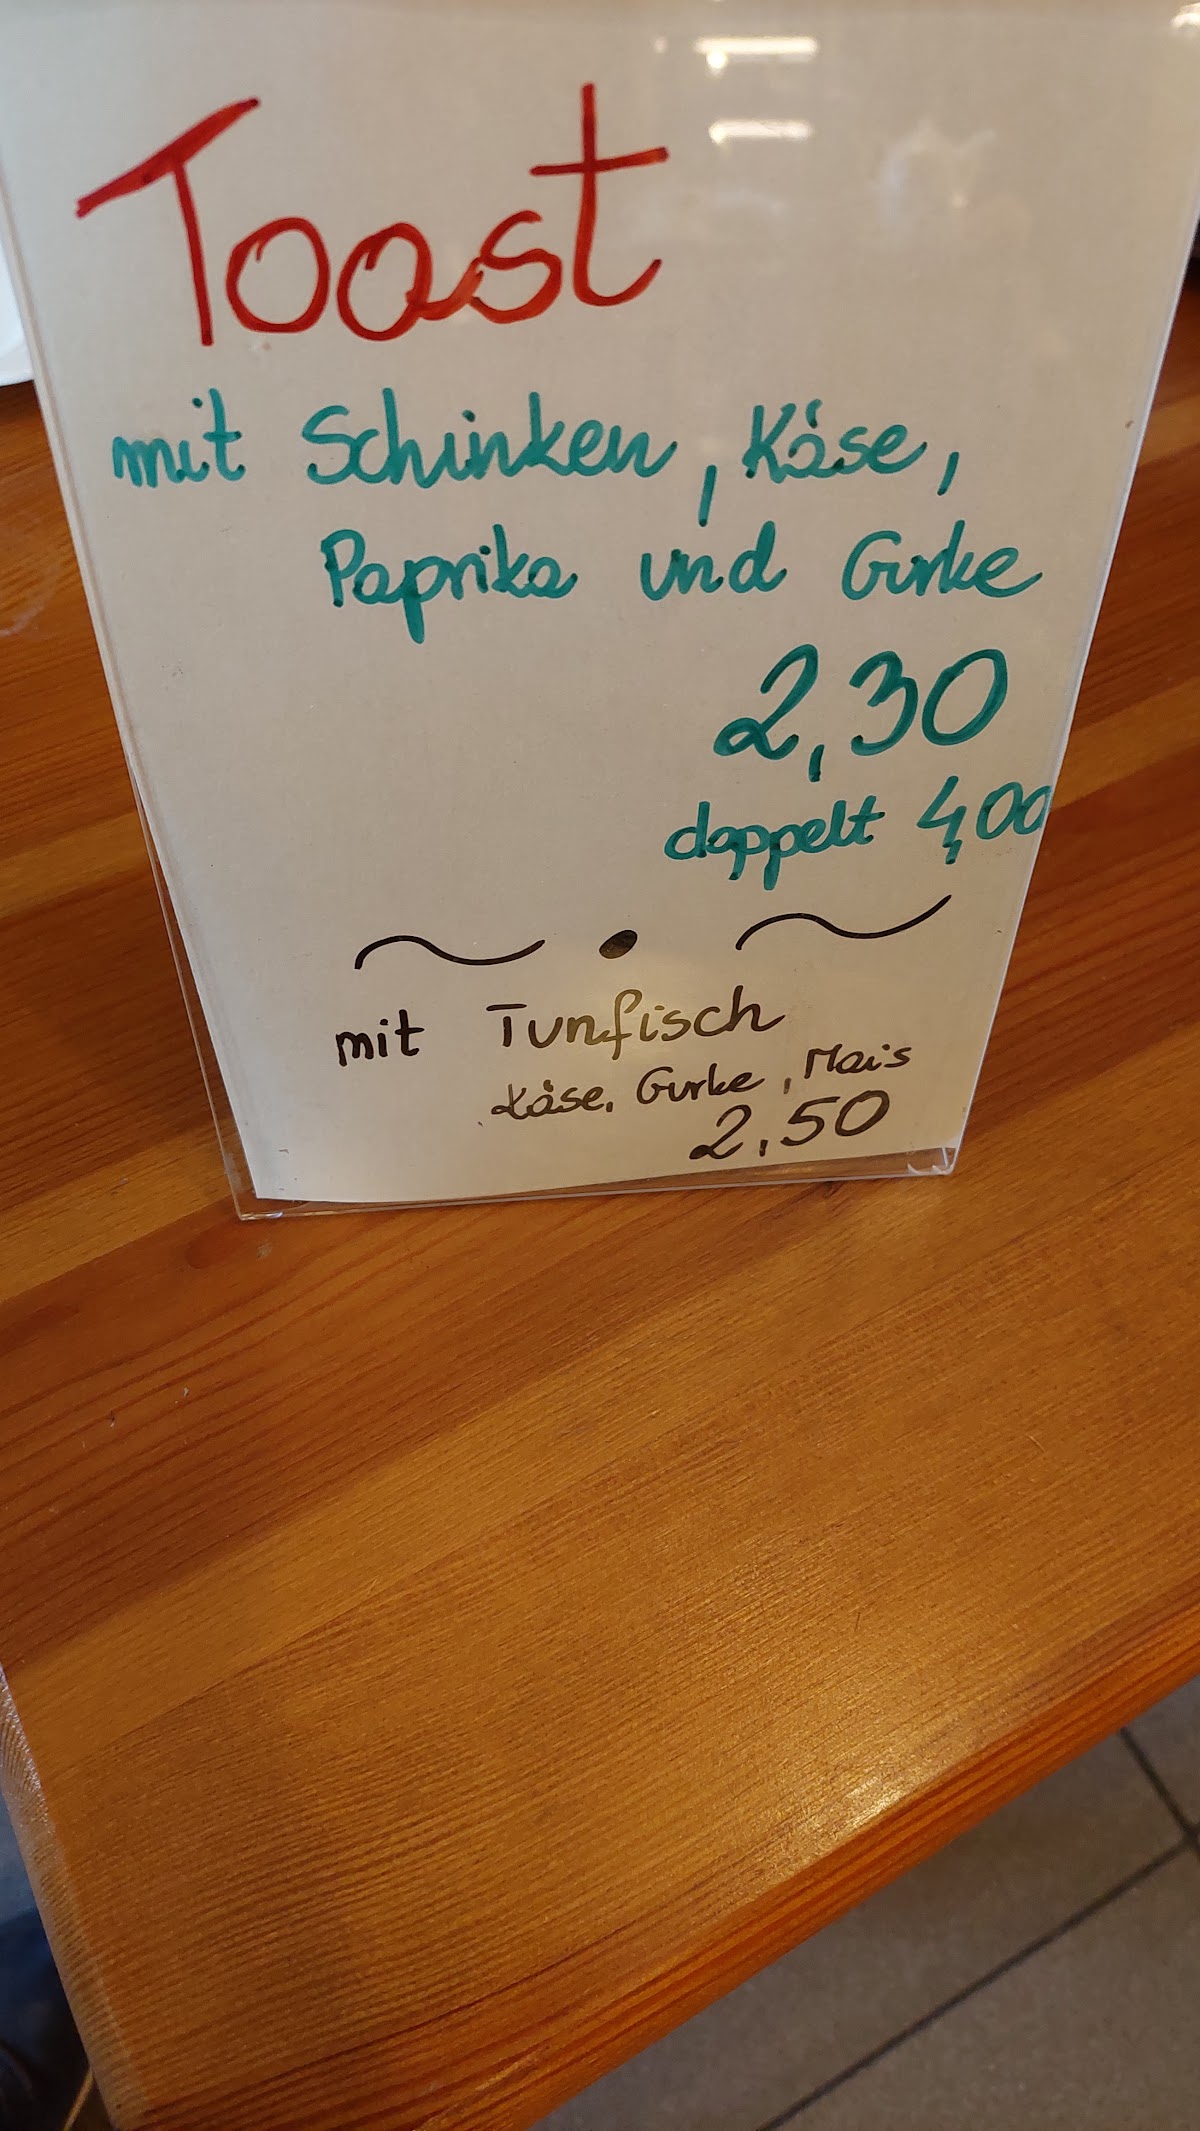 Toast
mit Schinken, Käse,
Paprika und Gurke
2,30
doppelt 4,00
~ • ~
mit Tunfisch
Käse, Gurke, Mais
2,50